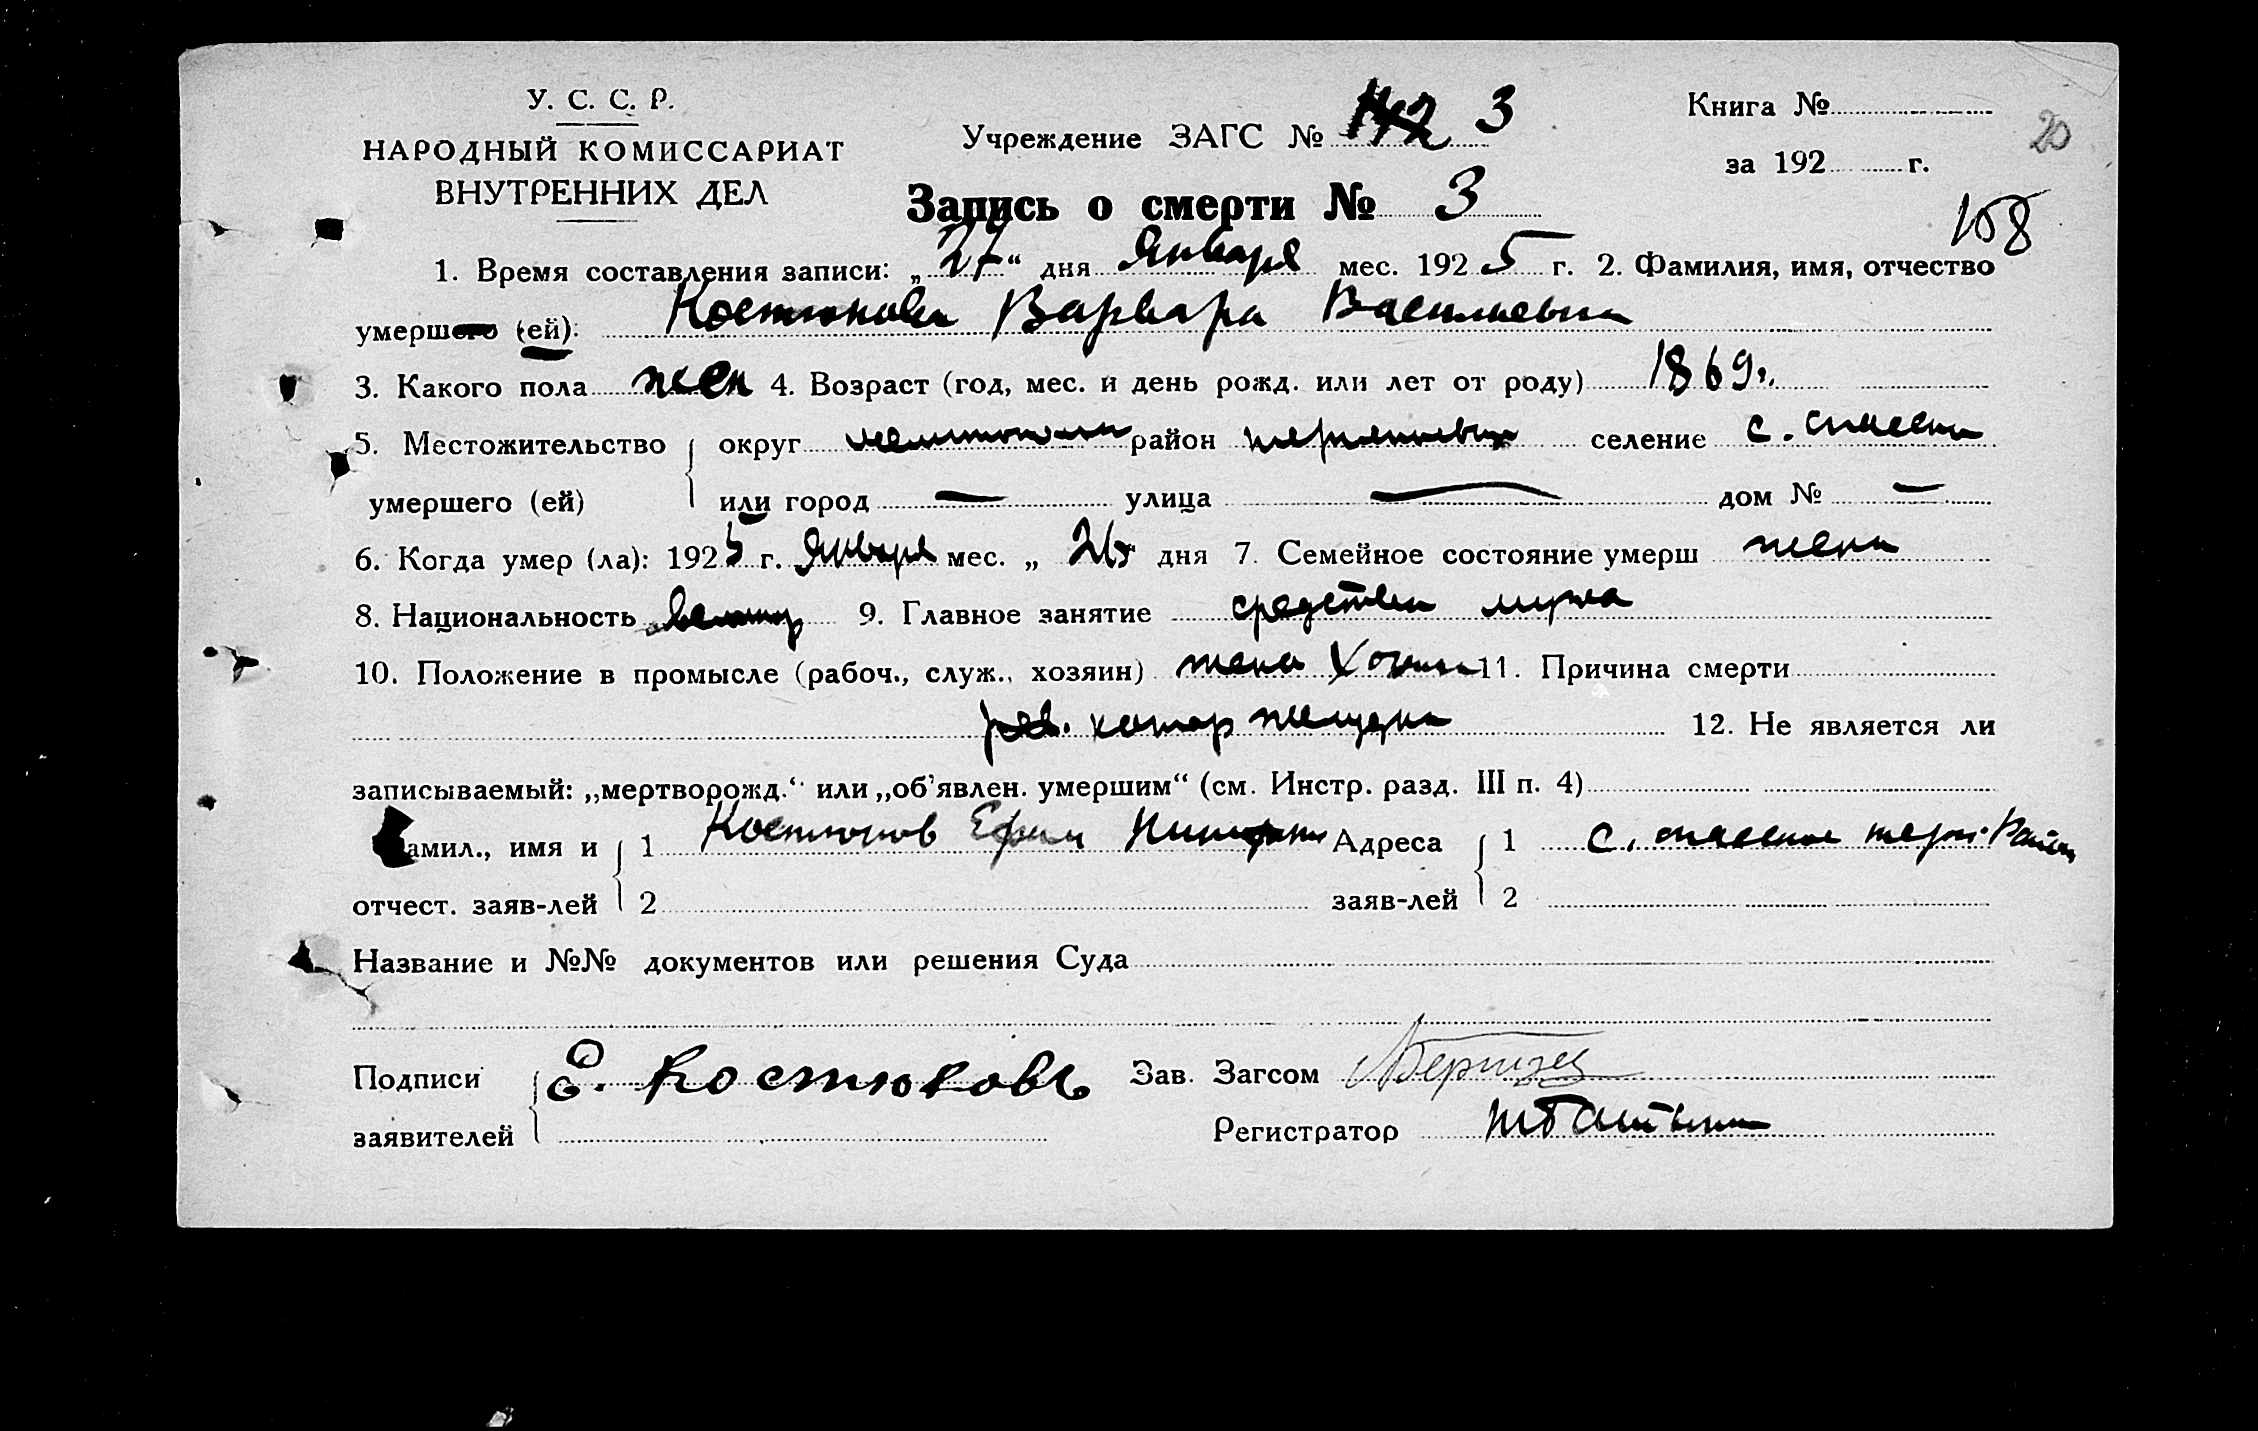 У. С. С. Р.
НАРОДНЫЙ КОМИССАРИАТ
ВНУТРЕННИХ ДЕЛ
Учреждение ЗАГС № 142 3
Книга №
за 192 г.
20
Запись о смерти № 3
158
1. Время составления записи: „27“ дня Января мес. 1925 г. 2. Фамилия, имя, отчество
умершего (ей): Костюкова Варвара Васильевна
3. Какого пола жен 4. Возраст (год, мес. и день рожд. или лет от роду) 1869г.
5. Местожительство округ район селение с.
умершего (ей) или город — улица — дом № —
6. Когда умер (ла): 1925 г. Января мес. „ 26 дня 7. Семейное состояние умерш жена
8. Национальность 9. Главное занятие средствен мужа
10. Положение в промысле (рабоч., служ., хозяин) жена 11. Причина смерти
12. Не является ли
записываемый: „мертворожд.“ или „об'явлен. умершим“ (см. Инстр. разд. III п. 4)
амил., имя и 1 Костюков Ефим Адреса 1 с.
отчест. заяв-лей 2 заяв-лей 2
Название и №№ документов или решения Суда
Подписи Е. Костюковъ Зав. Загсом
заявителей Регистратор